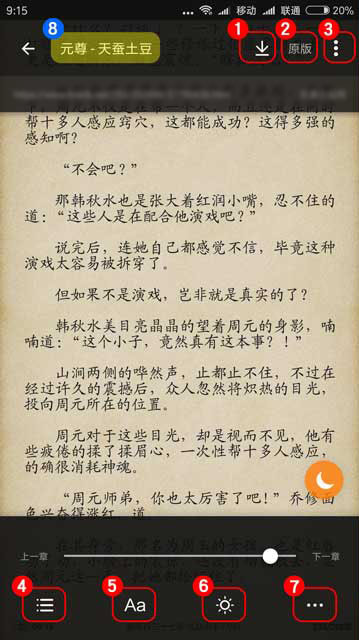 9:15 ... 移动 联通 20%
8 1 2 3
元尊 - 天蚕土豆 原版
帮十多人感应窍穴，这都能成功？这得多强的
感知啊？
“不会吧？”
那韩秋水也是张大着红润小嘴，忍不住的
道：“这些人是在配合他演戏吧？”
说完后，连她自己都感觉不信，毕竟这种
演戏太容易被拆穿了。
但如果不是演戏，岂非就是真实的了？
韩秋水美目亮晶晶的望着周元的身影，喃
喃道：“这个小子，竟然真有这本事？！”
山涧两侧的哗然声，止都止不住，不过在
经过许久的震撼后，众人忽然将炽热的目光，
投向周元所在的位置。
周元对于这些目光，却是视而不见，他有
些疲倦的揉了揉眉心，一次性帮十多人感应，
的确很消耗神魂。
“周元师弟，你也太厉害了吧！”乔修面
色兴奋得涨红，道
上一章 下一章
4 5 6 7
Aa